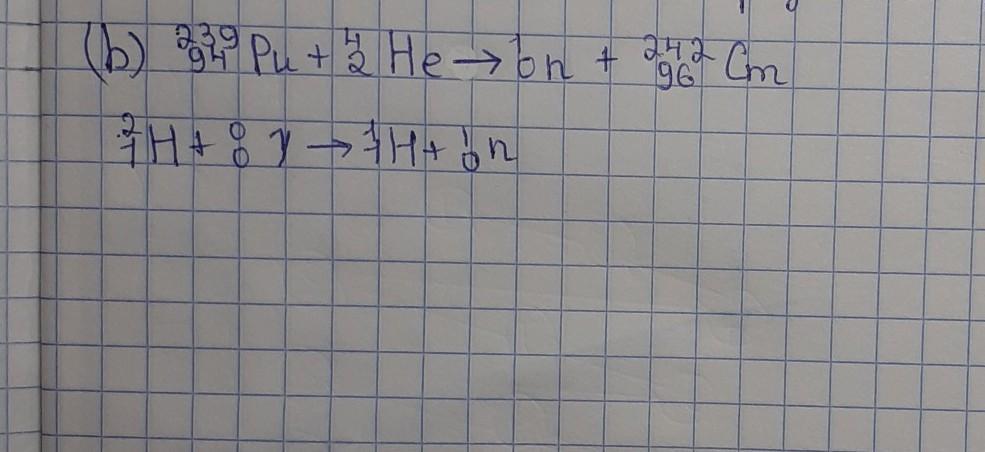 (b) ²³⁹₉₄Pu + ⁴₂He → ¹₀n + ²⁴²₉₆Cm
²₁H + ⁰₀γ → ¹₁H + ¹₀n